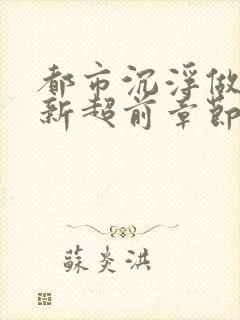 都市沉浮做
新超前章節
蘇炎洪